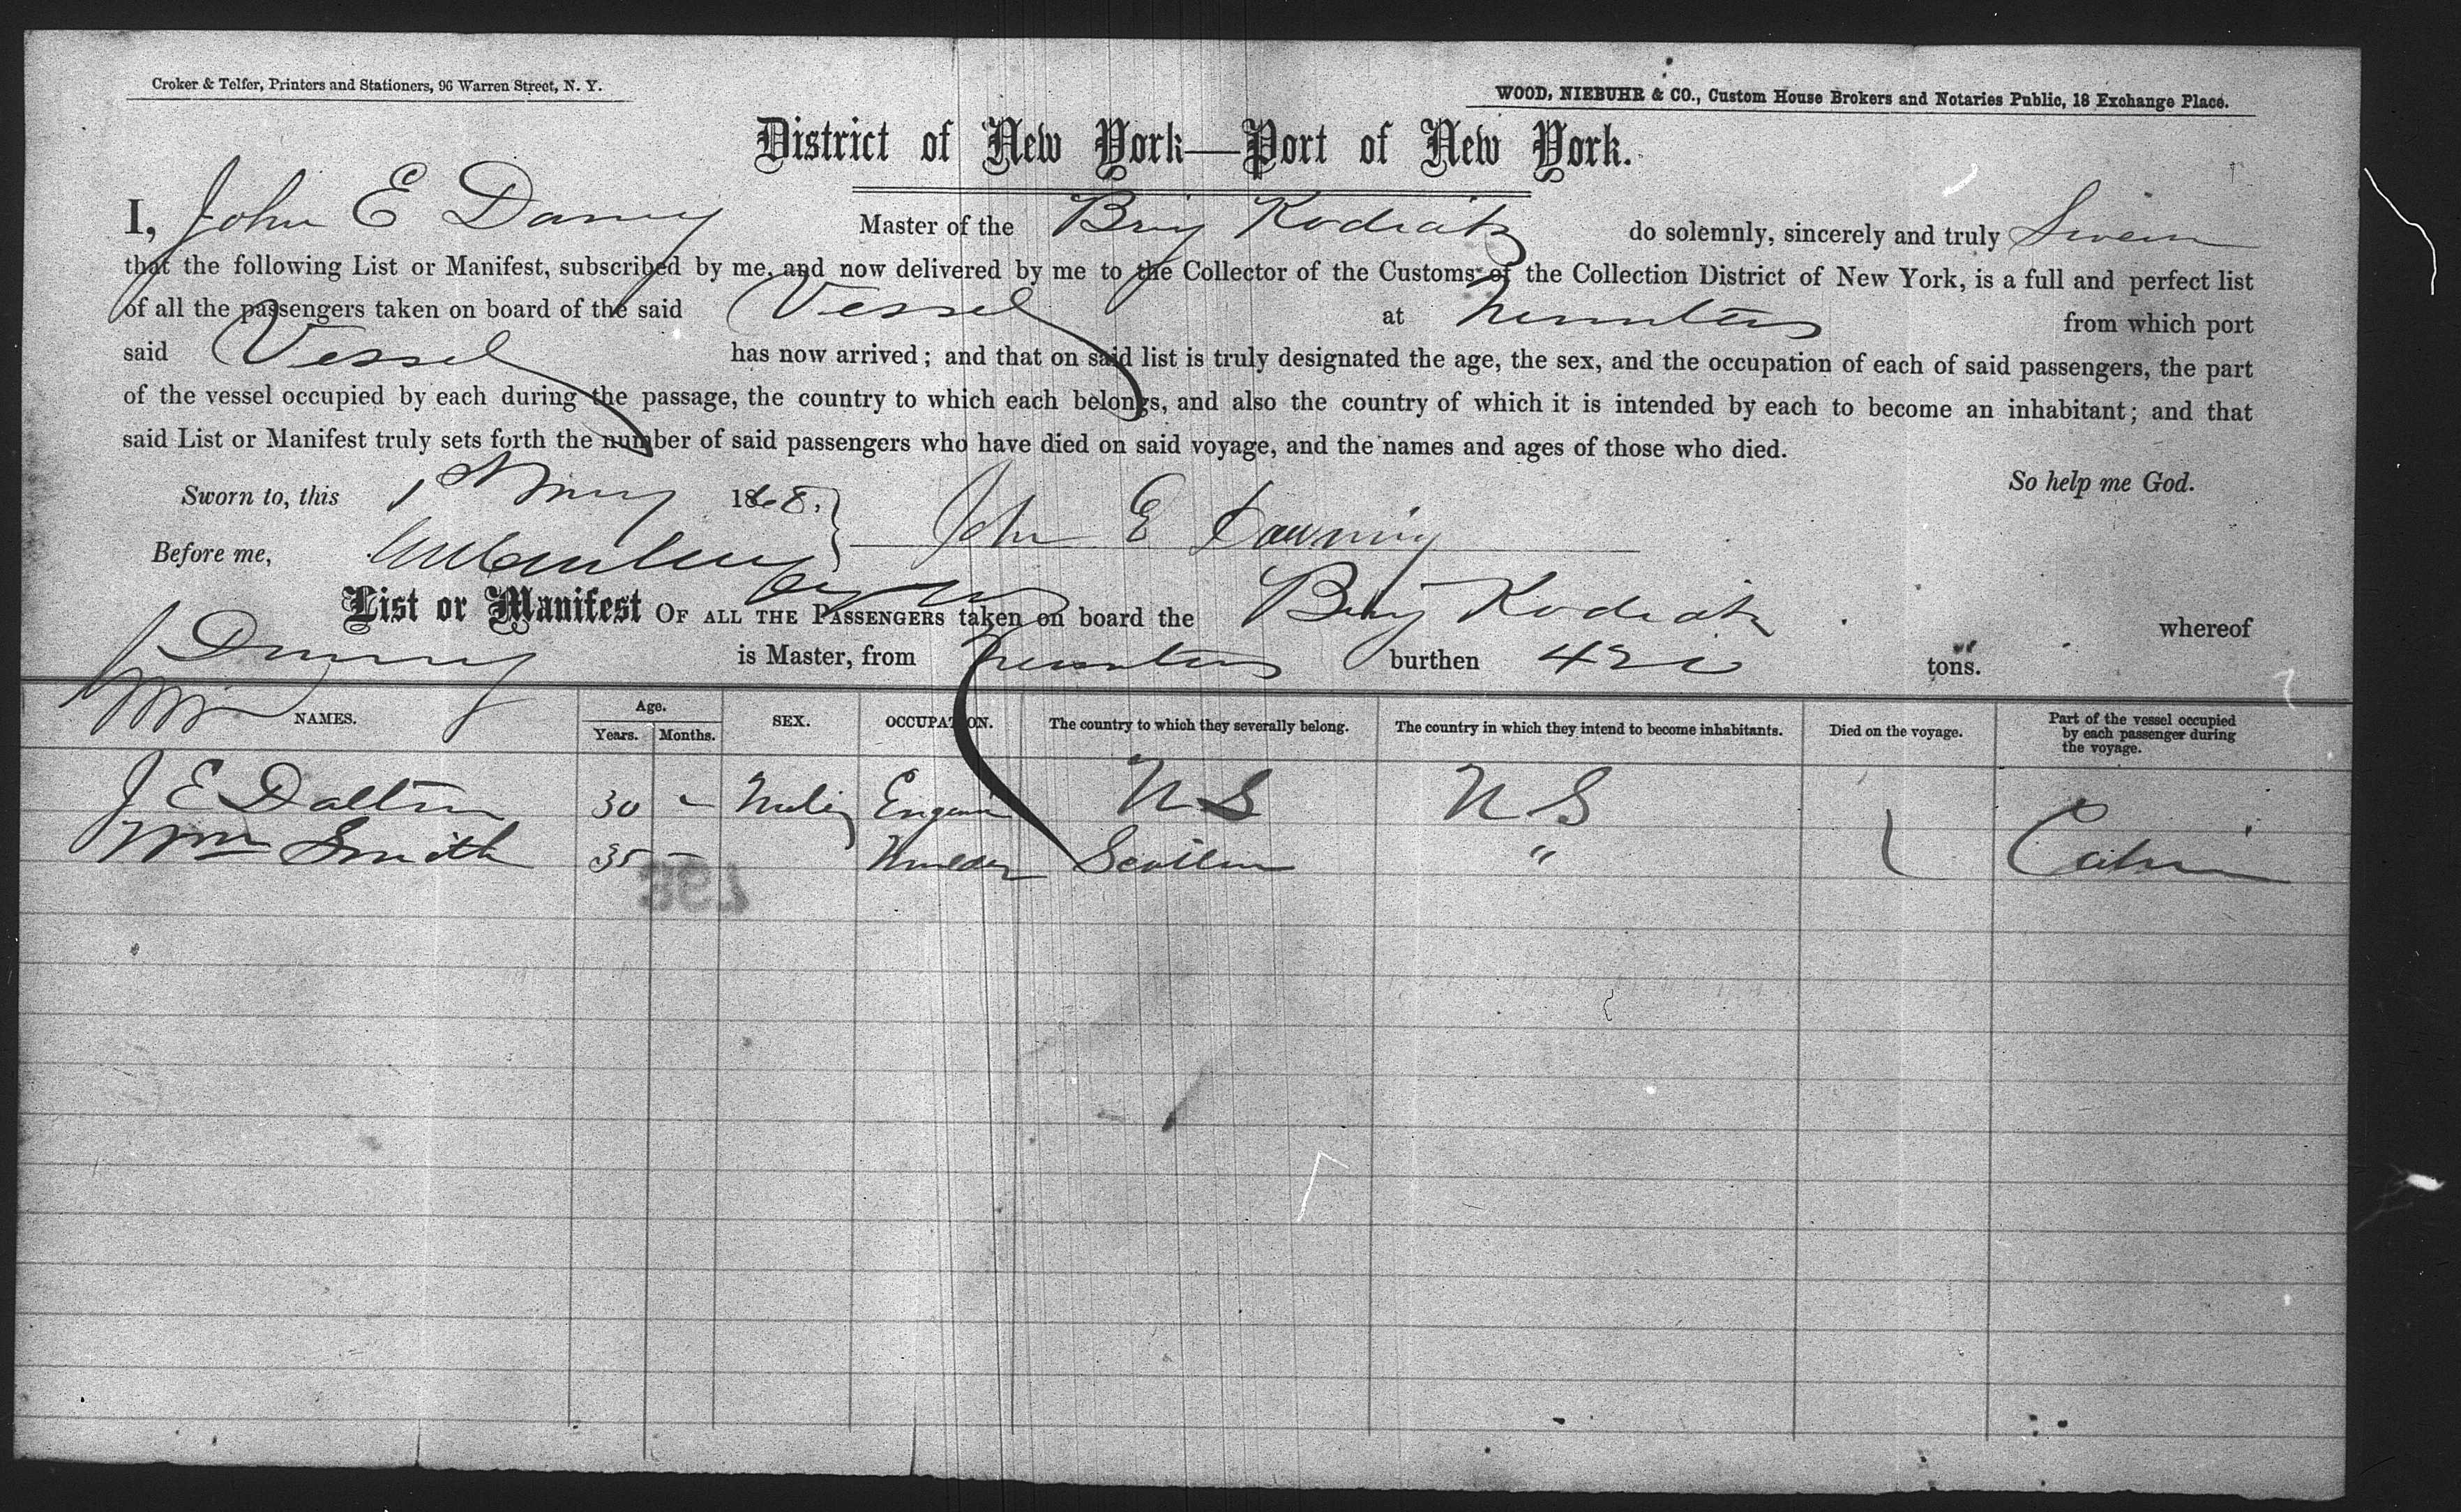 Croker & Telfer, Printers and Stationers, 96 Warren Street, N. Y.
WOOD, NIEBUHR & CO., Custom House Brokers and Notaries Public, 18 Exchange Place.
District of New York—Port of New York.
I, John E Master of the Brig Kodiak do solemnly, sincerely and truly Swear
that the following List or Manifest, subscribed by me, and now delivered by me to the Collector of the Customs of the Collection District of New York, is a full and perfect list
of all the passengers taken on board of the said Vessel at from which port
said Vessel has now arrived; and that on said list is truly designated the age, the sex, and the occupation of each of said passengers, the part
of the vessel occupied by each during the passage, the country to which each belongs, and also the country of which it is intended by each to become an inhabitant; and that
said List or Manifest truly sets forth the number of said passengers who have died on said voyage, and the names and ages of those who died.
So help me God.
Sworn to, this 1st May 1868.
John E Downing
Before me,
List or Manifest OF ALL THE PASSENGERS taken on board the Brig Kodiak whereof
is Master, from burthen tons.
NAMES. Age. Years. Months. SEX. OCCUPATION. The country to which they severally belong. The country in which they intend to become inhabitants. Died on the voyage. Part of the vessel occupied by each passenger during the voyage.
J E Dalton 30 - Male N S N S
Wm Smith 35 - " Cabin
367